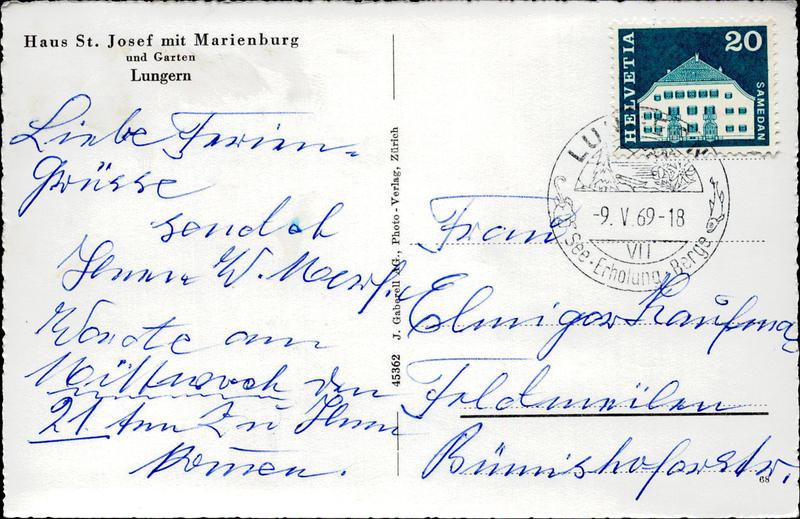 Haus St. Josef mit Marienburg
und Garten
Lungern
Liebe Ferien-
Grüsse
sendet
Ihnen W.
Werde am
Mittwoch den
21. Zu Ihnen
komen.
45362 J. Gaberell AG., Photo-Verlag, Zürich
HELVETIA
20
SAMEDAN
LU
-9. V. 69-18
VII
See · Erholung · Berge
Frau
Elmiger Kaufma
Feldmeilen
Bünishoferstr.
68